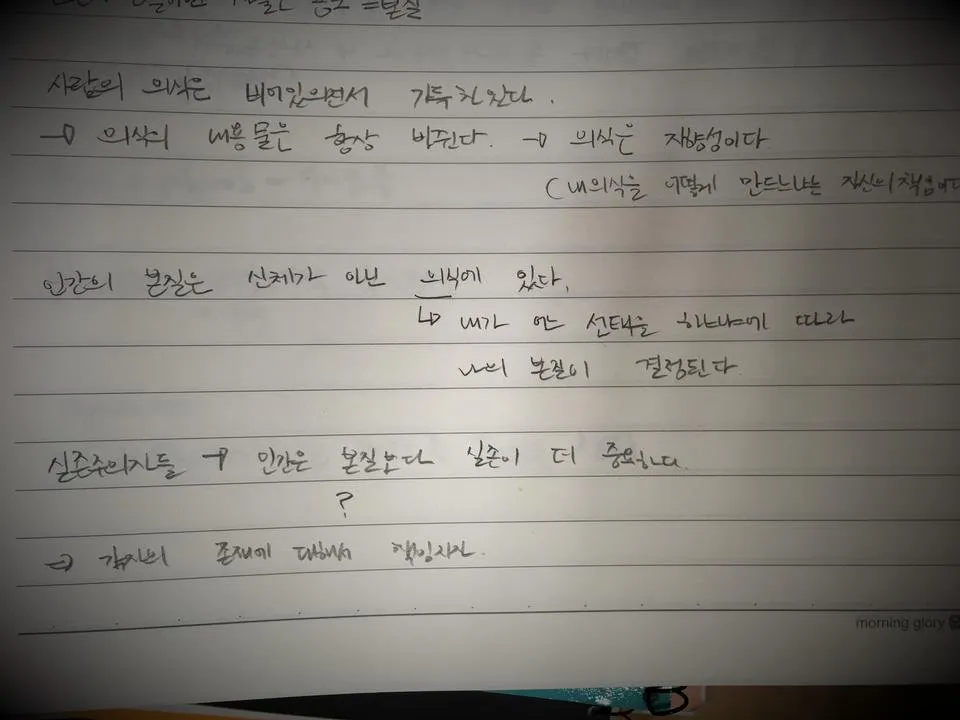 물은 용도 = 본질
사람의 의식은 비어있으면서 가득 찬 있다.
→ 의식의 내용물은 항상 바뀐다. → 의식은 지향성이다
(내 의식을 어떻게 만드느냐는 자신의 책임이다
인간의 본질은 신체가 아닌 의식에 있다.
↳ 내가 어느 선택을 하느냐에 따라
나의 본질이 결정된다
실존주의자들 → 인간은 본질보다 실존이 더 중요하다.
?
⇒ 각자의 존재에 대해서 책임지자.
morning glory